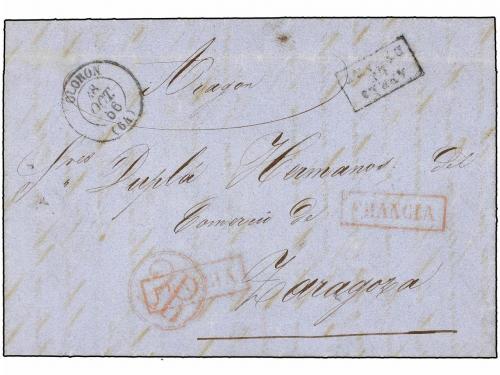 OLORON
18
OCT.
66
(64)
Aragon
APRÈS
LE
DÉPART
Sres Duplá Hermanos del
Comercio de
FRANCIA
Zaragoza